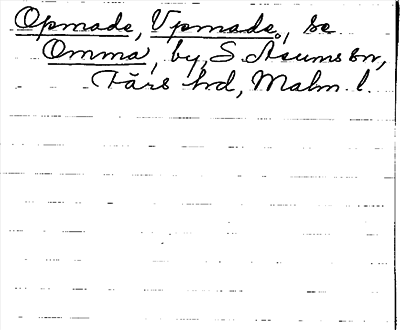 Opmade, Vpmade, se
Omma, by, S. Åsums sn,
Färs hd, Malm. l.